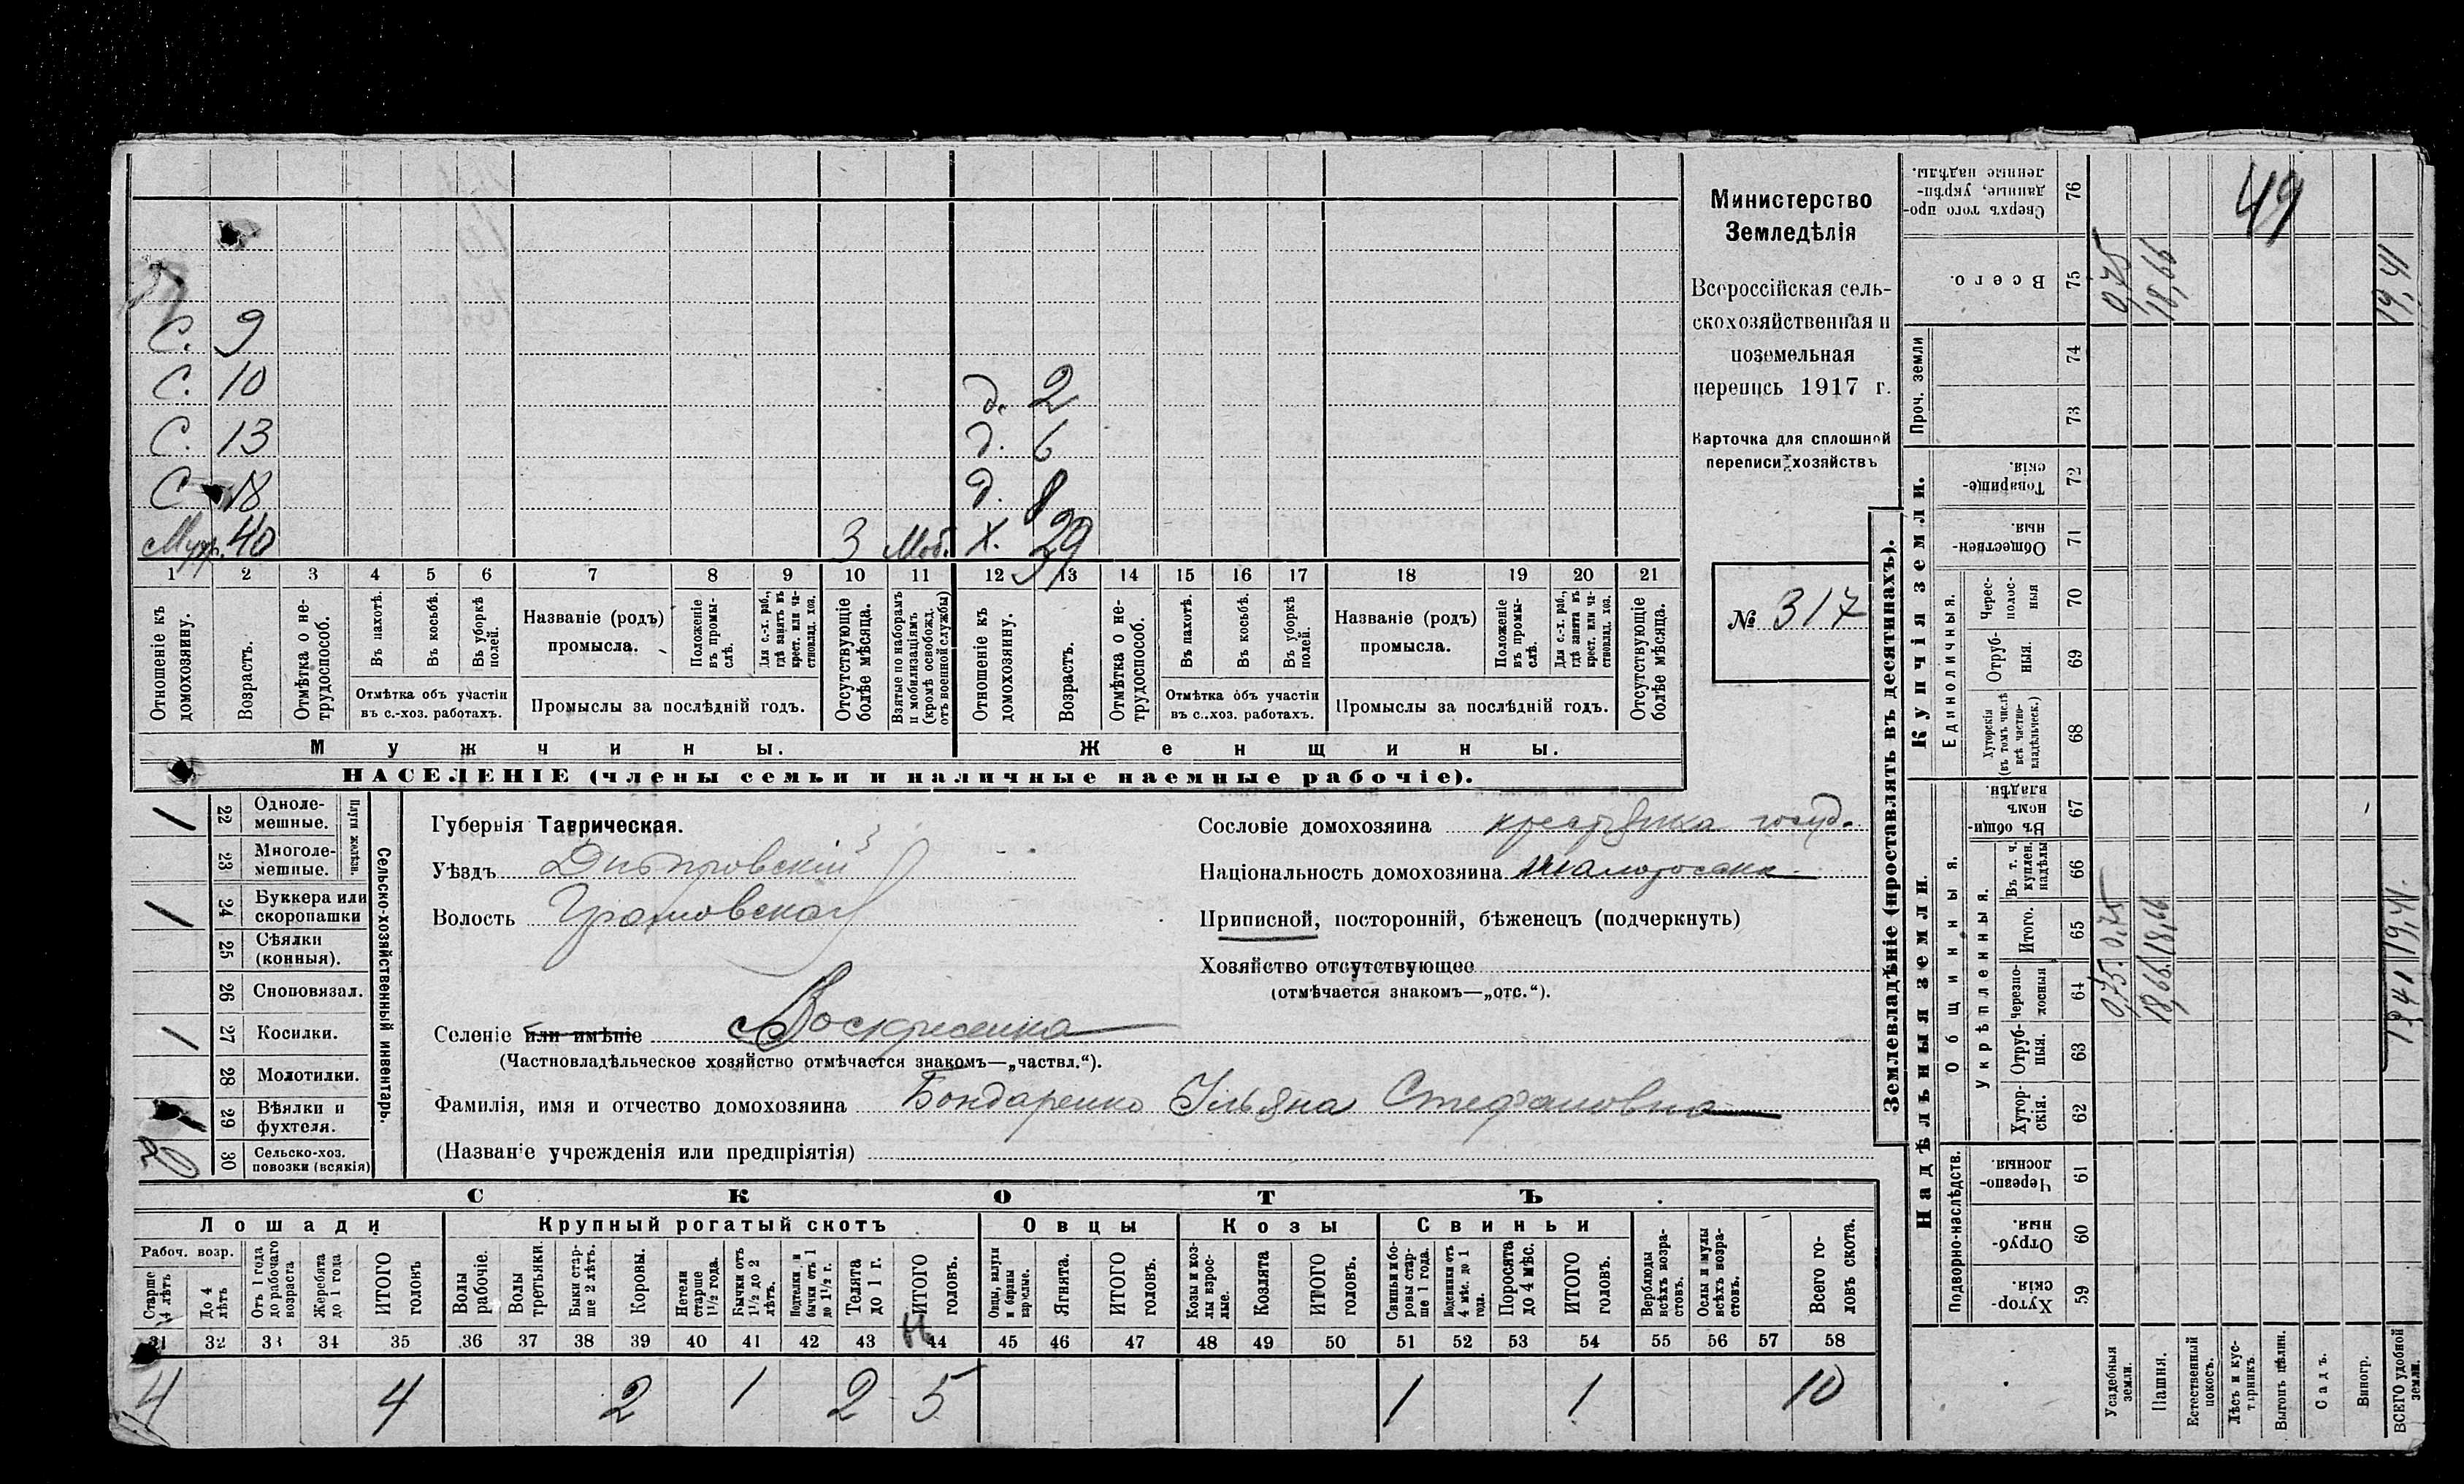 С. 9
С. 10
С. 13
С. 18
Муж. 40 3 Моб.
д. 2
д. 6
д. 8
х. 39
1 2 3 4 5 6 7 8 9 10 11 12 13 14 15 16 17 18 19 20 21
Отношеніе къ домохозяину.
Возрастъ.
Отмѣтка о нетрудоспособ.
Въ пахотѣ.
Въ косьбѣ.
Въ уборкѣ полей.
Отмѣтка объ участіи въ с.-хоз. работахъ.
Названіе (родъ) промысла.
Положеніе въ промыслѣ.
Для с.-х. раб., гдѣ занятъ въ крест. или частновлад. хоз.
Промыслы за послѣдній годъ.
Отсутствующіе болѣе мѣсяца.
Взятые по наборамъ и мобилизаціямъ (кромѣ освобожд. отъ военной службы)
Отношеніе къ домохозяину.
Возрастъ.
Отмѣтка о нетрудоспособ.
Въ пахотѣ.
Въ косьбѣ.
Въ уборкѣ полей.
Отмѣтка объ участіи въ с.-хоз. работахъ.
Названіе (родъ) промысла.
Положеніе въ промыслѣ.
Для с.-х. раб., гдѣ занята въ крест. или частновлад. хоз.
Промыслы за послѣдній годъ.
Отсутствующіе болѣе мѣсяца.
Мужчины. Женщины.
НАСЕЛЕНІЕ (члены семьи и наличные наемные рабочіе).
Министерство
Земледѣлія
Всероссійская сель-
скохозяйственная и
поземельная
перепись 1917 г.
Карточка для сплошной
переписи хозяйствъ
№ 317
Сельско-хозяйственный инвентарь.
Плуги желѣзн.
1 22 Одноле-
мешные.
23 Многоле-
мешные.
1 24 Буккера или
скоропашки
25 Сѣялки
(конныя).
26 Сноповязал.
1 27 Косилки.
28 Молотилки.
1 29 Вѣялки и
фухтеля.
30 Сельско-хоз.
повозки (всякія)
Губернія Таврическая.
Уѣздъ Днѣпровскій
Волость
Селеніе или имѣніе с Воскресенка
(Частновладѣльческое хозяйство отмѣчается знакомъ—„частвл.“).
Фамилія, имя и отчество домохозяина Бондаренко Ульяна Стефановна
(Названіе учрежденія или предпріятія)
Сословіе домохозяина крестьянка госуд.
Національность домохозяина
Приписной, посторонній, бѣженецъ (подчеркнуть)
Хозяйство отсутствующее
(отмѣчается знакомъ—„отс.“).
СКОТЪ
Лошади Крупный рогатый скотъ Овцы Козы Свиньи
Рабоч. возр.
Старше 4 лѣтъ
До 4 лѣтъ
Отъ 1 года до рабочаго возраста
Жеребята до 1 года
ИТОГО головъ
Волы рабочіе.
Волы третьяки.
Быки старше 2 лѣтъ.
Коровы.
Нетели старше 1½ года.
Бычки отъ 1½ до 2 лѣтъ.
Подтелки и бычки отъ 1 до 1½ г.
Телята до 1 г.
ИТОГО головъ.
Овцы, валухи и бараны взрослые.
Ягнята.
ИТОГО головъ.
Козы и козлы взрослые.
Козлята
ИТОГО головъ.
Свиньи и боровы старше 1 года.
Подсвинки отъ 4 мѣс. до 1 года.
Поросята до 4 мѣс.
ИТОГО головъ.
Верблюды всѣхъ возрастовъ.
Ослы и мулы всѣхъ возрастовъ.
Всего головъ скота.
31 32 33 34 35 36 37 38 39 40 41 42 43 44 45 46 47 48 49 50 51 52 53 54 55 56 57 58
4 4 2 1 2 5 1 1 10
Землевладѣніе (проставлять въ десятинахъ).
Надѣльныя земли. Купчія земли.
Проч. земли
Подворно-наслѣдств.
Общинныя.
Укрѣпленныя.
Единоличныя.
Хуторскія. 59
Отрубныя. 60
Черезполосныя. 61
Хуторскія. 62
Отрубныя. 63
Черезполосныя 64
Итого. 65
Въ т. ч. куплен. надѣлы 66
Въ общинномъ владѣн. 67
Хуторскія (въ томъ числѣ всѣ частновладѣльческ.) 68
Отрубныя. 69
Чересполосныя 70
Общественныя. 71
Товарищескія. 72
73
74
Всего. 75
Сверхъ того проданные, укрѣпленные надѣлы. 76
Усадебныя земли. 0,75 0,75 0,75
Пашня. 18,66 18,66 18,66
Естественный покосъ.
Лѣсъ и кустарникъ
Выгонъ цѣлин.
Садъ.
Виногр.
ВСЕГО удобной земли. 19,41 19,41 19,41
49